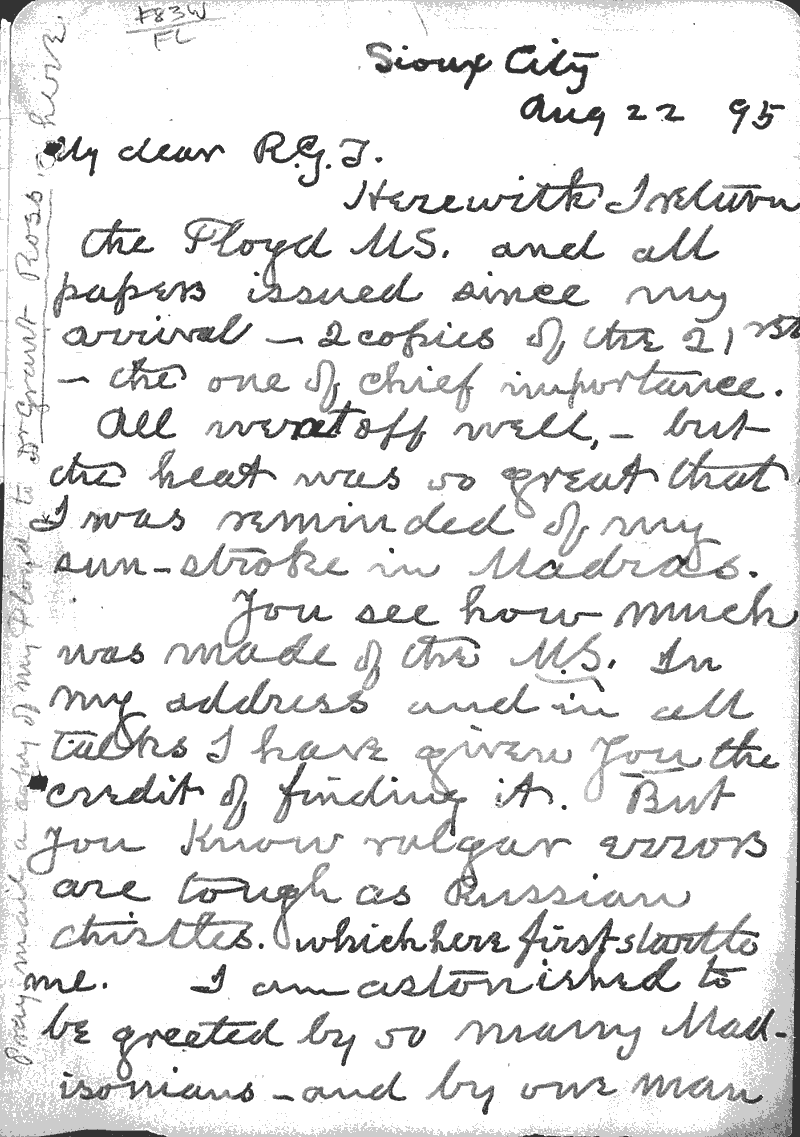 F83W
FL
Sioux City
Aug 22 95
My dear R.G.T.
Herewith I return
the Floyd MS. and all
papers issued since my
arrival — 2 copies of the 21rst
— the one of chief importance.
All went off well, — but
the heat was so great that
I was reminded of my
sun-stroke in Madras.
You see how much
was made of the MS. In
my address and in all
talks I have given you the
credit of finding it. But
you know vulgar errors
are tough as Russian
thistles. which here first startle
me. I am astonished to
be greeted by so many Mad-
isonians — and by one man
Pray mail a copy of my Floyd to Dr Grant Ross, here